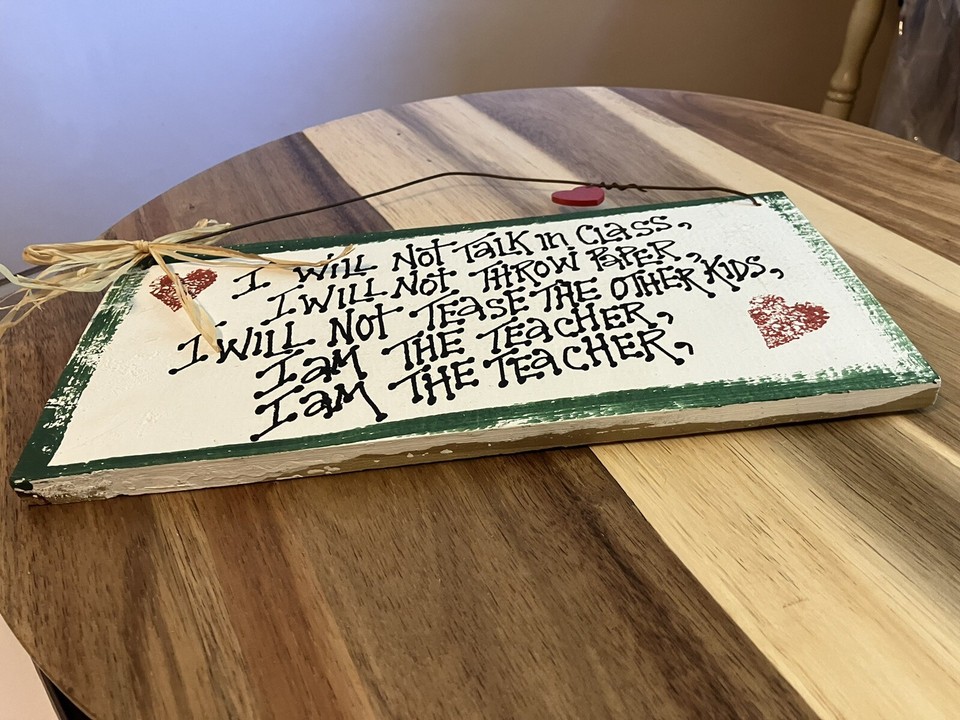 I WILL NOT TaLK in CLaSS,
I WILL NOT THROW PaPER,
I WILL NOT TEaSE THE OTHER KIDS,
I aM THE TEaCHER,
I aM THE TEaCHER,